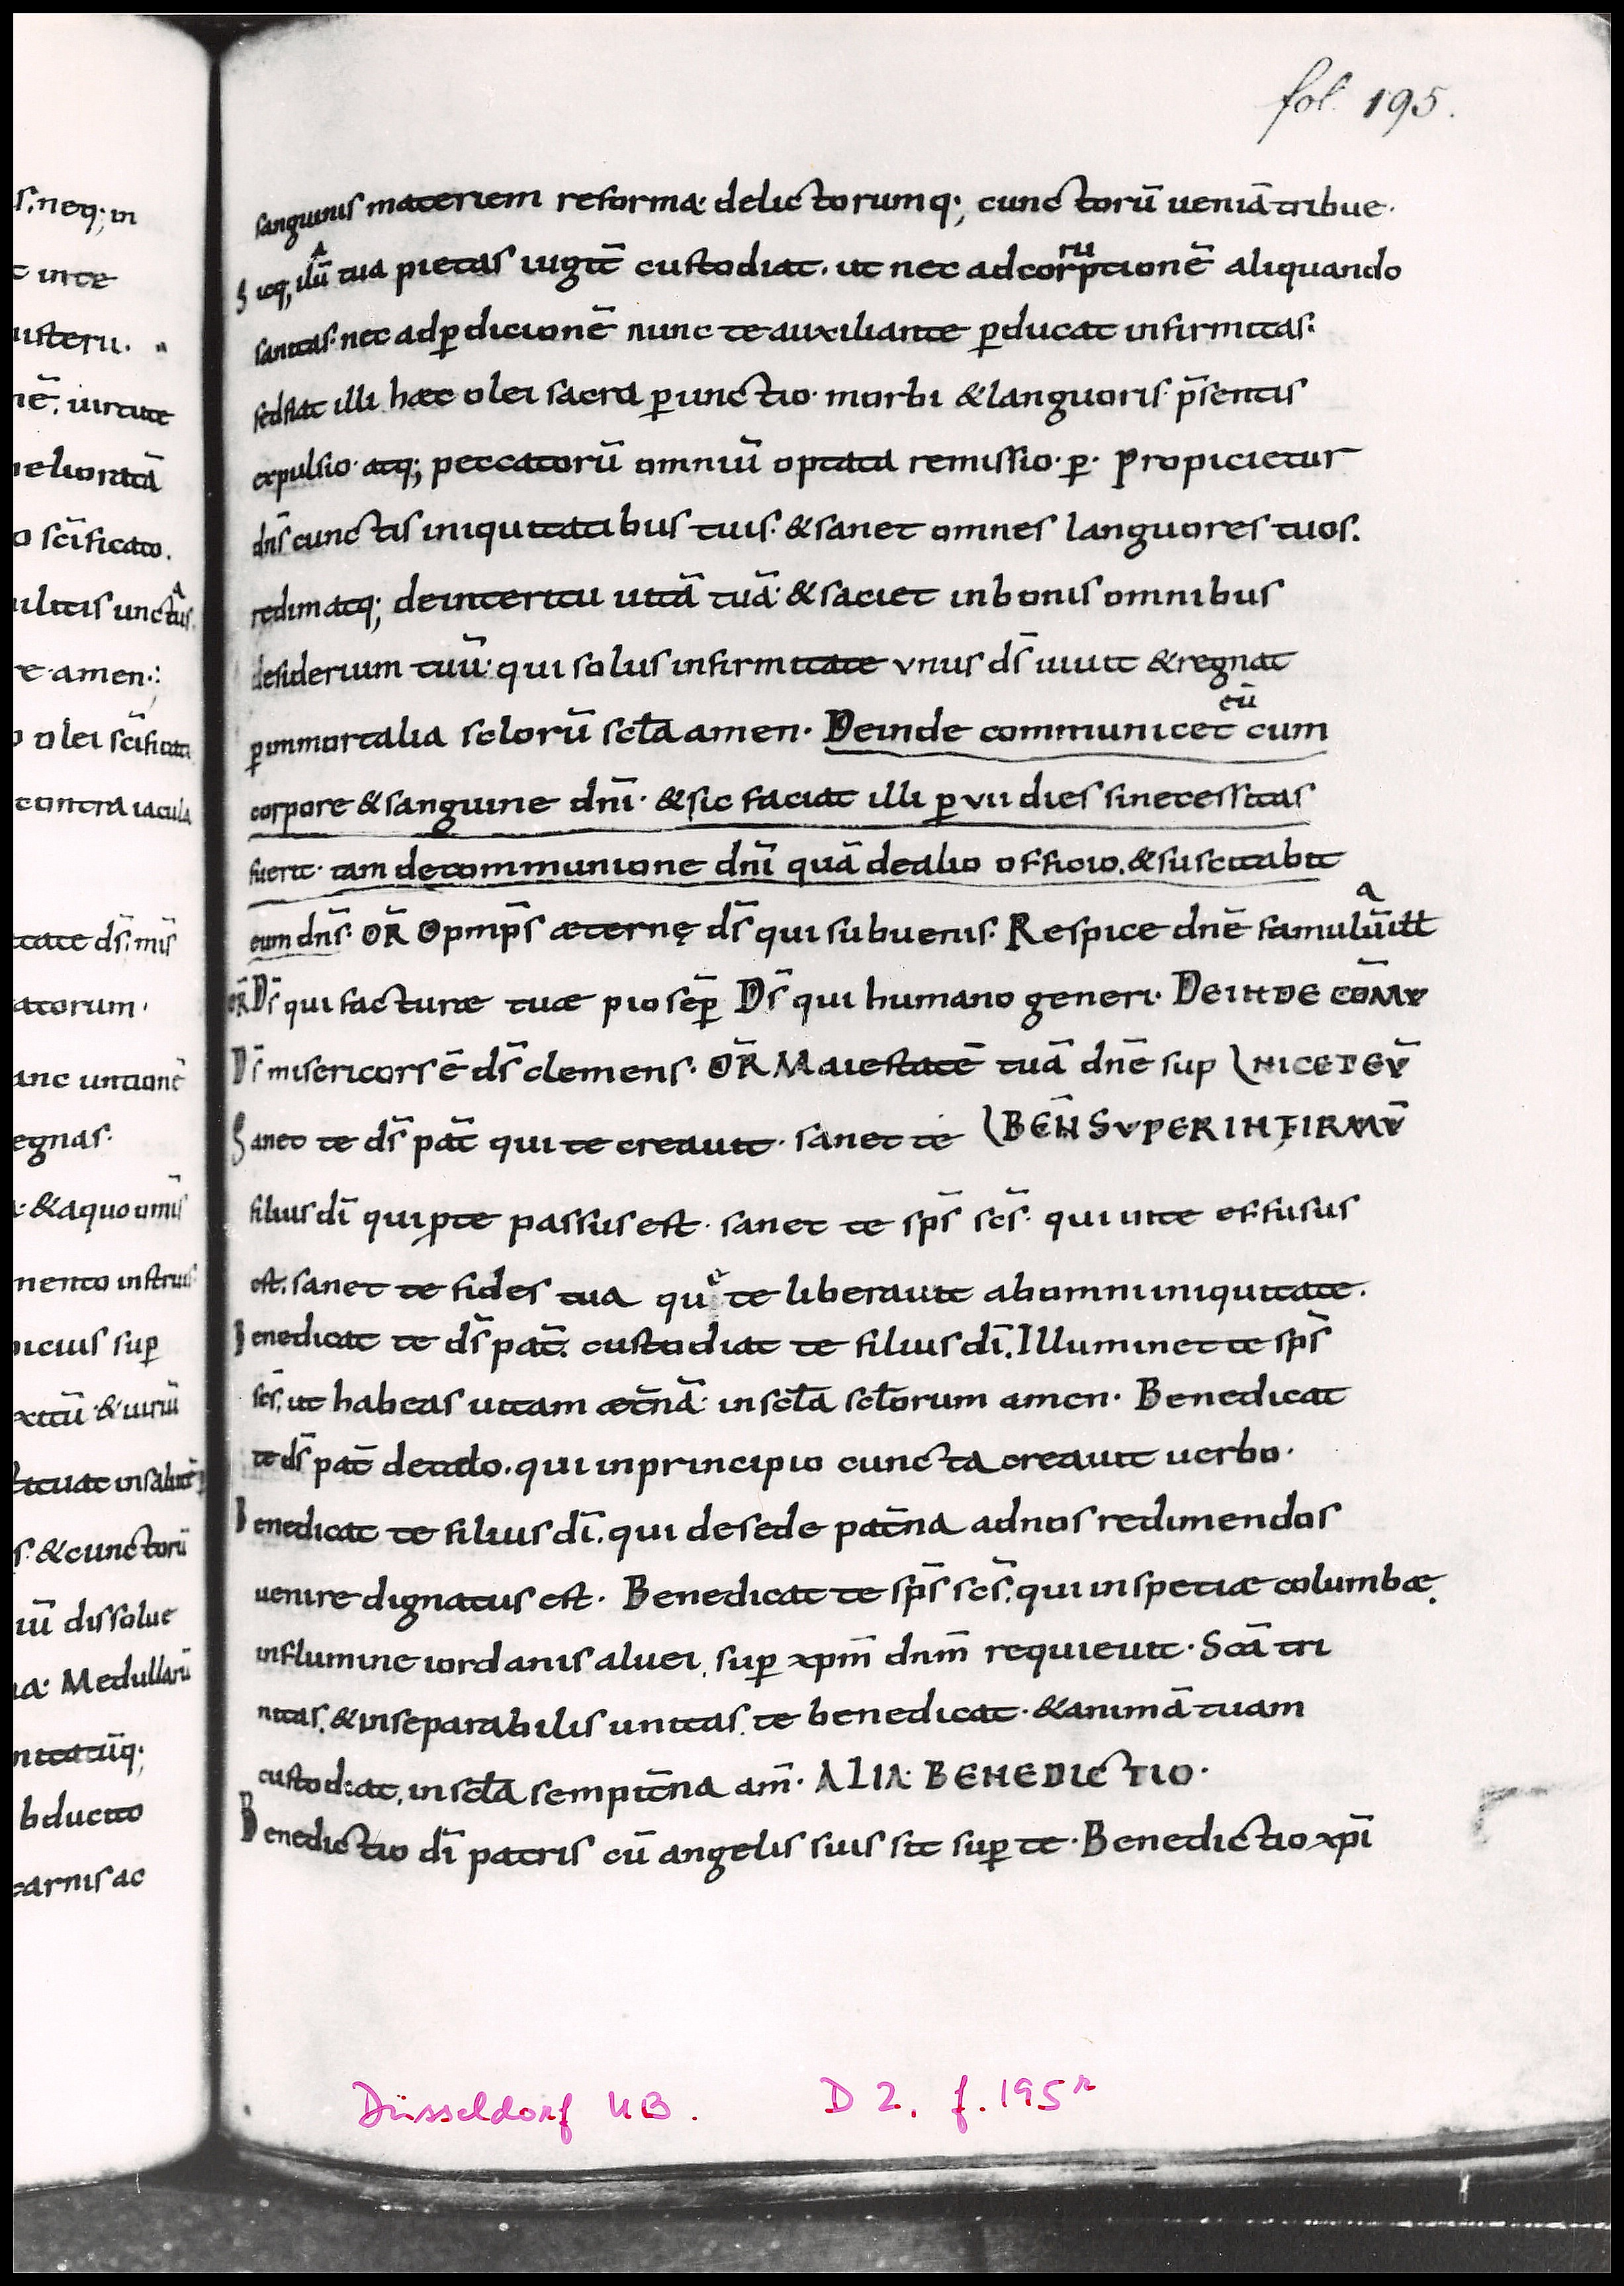 fol. 195.
s. neq; in
t in te
uisterii.
nē. uirtute
melioratā
o scīficato.
militis unctus.
A
re. amen.:
o olei scīficati
contra iacula
tate dš. mīs
atorum.
anc untionē
egnas.
a. & a quo om̄īs
mento instruis
picius sup
extū. & uirū
stituat in salutē
s. & cunctorū
iū dissolue
na. Medullarū
nitatūq;
bductio
carnis ac
sanguinis materiem reforma. delictorumq; cunctorū ueniā tribue.
Sicq; ilū tua pietas iugit̄ custodiat. ut nec ad corptionē aliquando
A ru
sanitas. nec ad pdicionē nunc te auxiliante pducat infirmitas.
sed fiat illi hæc olei sacra punctio. morbi & languoris p̄sentis
expulsio. atq; peccatorū omniū optata remissio. p. Propicietur
dn̄s cunctis iniquitatibus tuis. & sanet omnes languores tuos.
redimatq; de interitu uitā tuā. & saciet in bonis omnibus
desiderium tuū. qui solus in firmitate unus dš uiuit & regnat
p inmortalia sclorū sc̄la amen. Deinde communicet cum
eū
corpore & sanguine dn̄i. & sic faciat illi p vii dies si necessitas
fuerit. tam de communione dn̄i quā de alio officio. & suscitabit
eum dn̄s. OR̄ Opmp̄s æternę dš qui subuenis. Respice dn̄e famulū ill
a
OR̄ Dš qui facturæ tuæ pio sep̄ Dš qui humano generi. DEINDE COM̄V
Dš misericors ē dš clemens. OR̄ Maiestatē tuā dn̄e sup NICET EV̄
Sanet te dš pat̄ qui te creauit. sanet te BEN̄ SVPER INFIRMV̄
filius dī qui pte passus est. sanet te sp̄s sc̄s. qui in te effusus
est. sanet te fides tua qu te liberauit ab omni iniquitate.
ę
Benedicat te dš pat̄. custodiat te filius dī. Illuminet te sp̄s
sc̄s. ut habeas uitam æt̄nā. in sc̄la sc̄lorum amen. Benedicat
te dš pat̄ de cælo. qui in principio cuncta creauit uerbo.
Benedicat te filius dī. qui de sede pat̄na ad nos redimendos
uenire dignatus est. Benedicat te sp̄s sc̄s. qui in spetiæ columbæ.
in flumine iordanis aluei. sup xpm̄ dnm̄ requieuit. Sc̄a tri
nitas. & inseparabilis unitas. te benedicat. & animā tuam
custodiat. in sc̄la sempit̄na am̄. ALIA BENEDICTIO.
Benedictio dī patris cū angelis suis sit sup te. Benedictio xp̄i
Düsseldorf UB. D 2. f. 195r